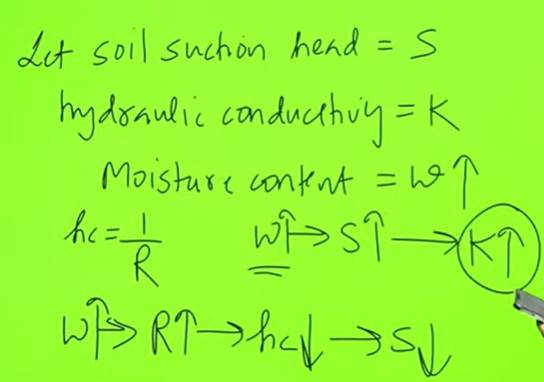 Let soil suction head = S
hydraulic conductivity = K
Moisture content = w ↑
hc = 1/R w↑ → S↑ → K↑
w↑ → R↑ → hc↓ → S↓